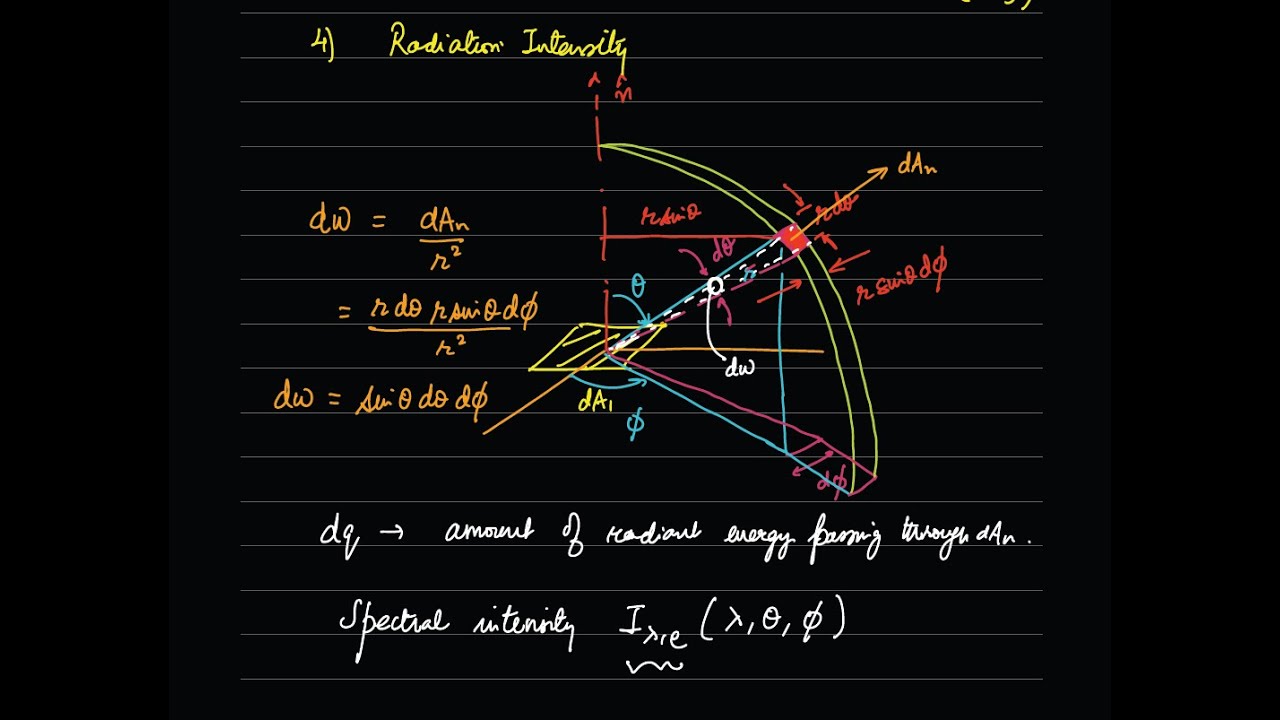 4) Radiation Intensity
n̂
dAn
r dθ
r sinθ
dθ
r
r sinθ dϕ
θ
dω = dAn / r²
= r dθ r sinθ dϕ / r²
dω
dω = sinθ dθ dϕ
dA₁
ϕ
dϕ
dq → amount of radiant energy passing through dAn.
Spectral intensity I λ,e (λ, θ, ϕ)